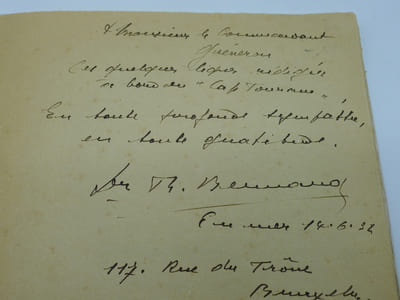 A Monsieur le Commandant
Quéneron
Ces quelques lignes rédigées
à bord du "Cap Tourane",
En toute profonde sympathie,
en toute gratitude.
Dr Th.
En mer 14.6.32
117. Rue du Trône
Bruxelles